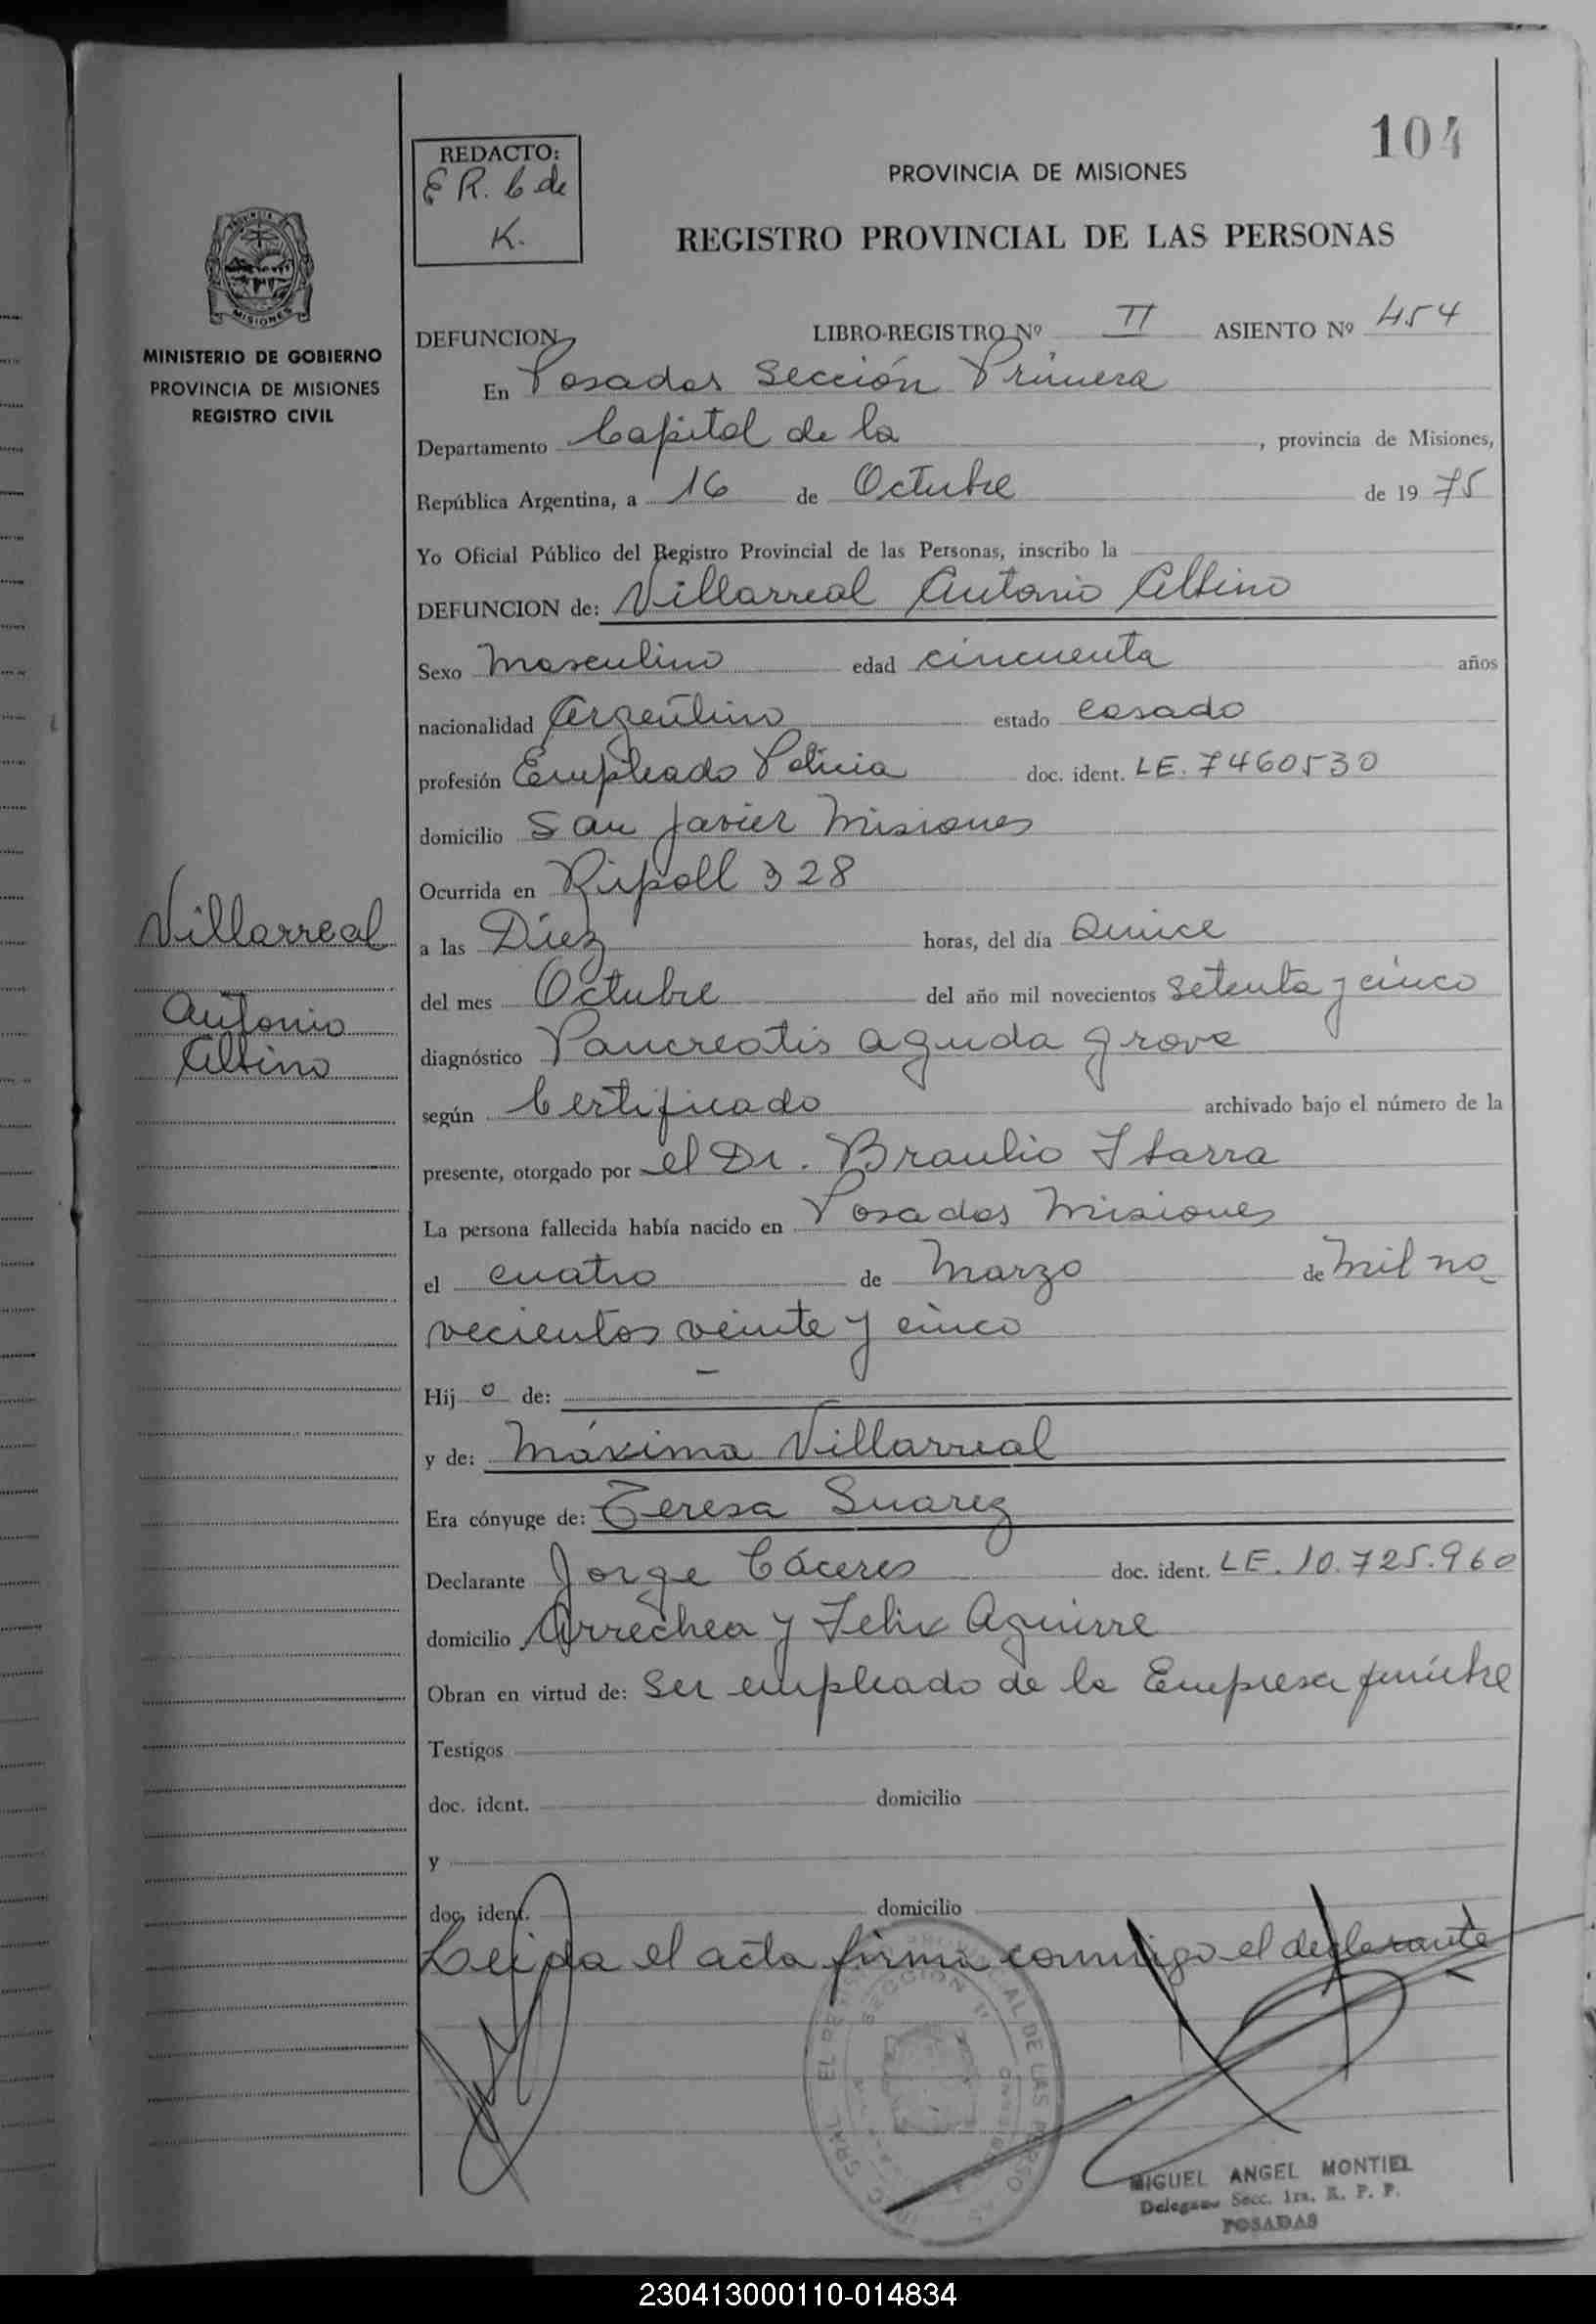 104
REDACTO:
E R. C de
K.
PROVINCIA DE MISIONES
REGISTRO PROVINCIAL DE LAS PERSONAS
MISIONES
MINISTERIO DE GOBIERNO
PROVINCIA DE MISIONES
REGISTRO CIVIL
DEFUNCION LIBRO-REGISTRO Nº II ASIENTO Nº 454
En Posadas Sección Primera
Departamento Capital de la , provincia de Misiones,
República Argentina, a 16 de Octubre de 19 75
Yo Oficial Público del Registro Provincial de las Personas, inscribo la
DEFUNCION de: Villarreal Antonio Albino
Sexo Masculino edad cincuenta años
nacionalidad Argentino estado Casado
profesión Empleado Policia doc. ident. LE. 7460530
domicilio San Javier Misiones
Ocurrida en Ripoll 328
a las Diez horas, del día Quince
del mes Octubre del año mil novecientos Setenta y cinco
diagnóstico Pancreatis aguda grave
según Certificado archivado bajo el número de la
presente, otorgado por el Dr. Braulio Ibarra
La persona fallecida había nacido en Posadas Misiones
el cuatro de Marzo de mil no
vecientos veinte y cinco
Hij o de: —
y de: Máxima Villarreal
Era cónyuge de: Teresa Suarez
Declarante Jorge Cáceres doc. ident. LE. 10.725.960
domicilio Arrechea y Felix Aguirre
Obran en virtud de: Ser empleado de la Empresa fúnebre
Testigos
doc. ident. domicilio
y
doc. ident. domicilio
Leida el acta firma conmigo el declarante
Villarreal
Antonio
Albino
MIGUEL ANGEL MONTIEL
Delegado Secc. 1ra. R. P. P.
POSADAS
230413000110-014834